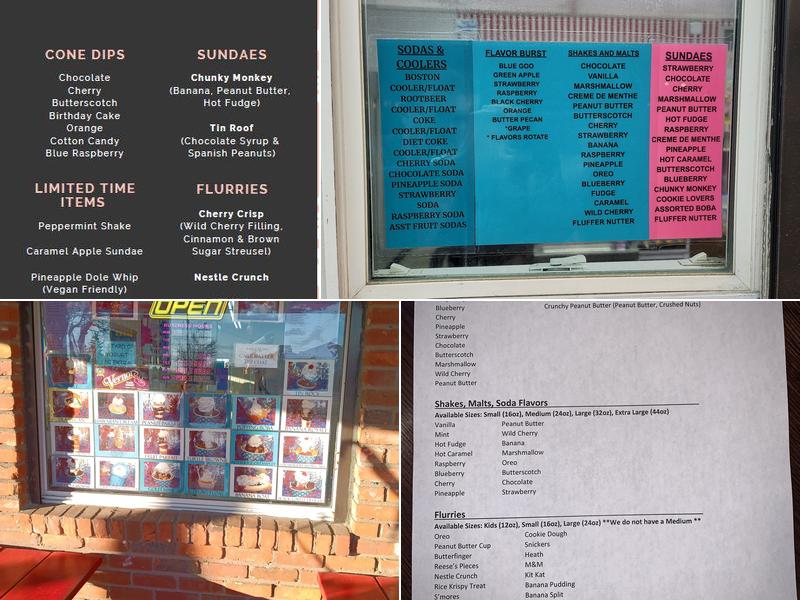 CONE DIPS
Chocolate
Cherry
Butterscotch
Birthday Cake
Orange
Cotton Candy
Blue Raspberry
LIMITED TIME
ITEMS
Peppermint Shake
Caramel Apple Sundae
Pineapple Dole Whip
(Vegan Friendly)
SUNDAES
Chunky Monkey
(Banana, Peanut Butter,
Hot Fudge)
Tin Roof
(Chocolate Syrup &
Spanish Peanuts)
FLURRIES
Cherry Crisp
(Wild Cherry Filling,
Cinnamon & Brown
Sugar Streusel)
Nestle Crunch
SODAS &
COOLERS
BOSTON
COOLER/FLOAT
ROOTBEER
COOLER/FLOAT
COKE
COOLER/FLOAT
DIET COKE
COOLER/FLOAT
CHERRY SODA
CHOCOLATE SODA
PINEAPPLE SODA
STRAWBERRY
SODA
RASPBERRY SODA
ASST FRUIT SODAS
FLAVOR BURST
BLUE GOO
GREEN APPLE
STRAWBERRY
RASPBERRY
BLACK CHERRY
ORANGE
BUTTER PECAN
*GRAPE
* FLAVORS ROTATE
SHAKES AND MALTS
CHOCOLATE
VANILLA
MARSHMALLOW
CREME DE MENTHE
PEANUT BUTTER
BUTTERSCOTCH
CHERRY
STRAWBERRY
BANANA
RASPBERRY
PINEAPPLE
OREO
BLUEBERRY
FUDGE
CARAMEL
WILD CHERRY
FLUFFER NUTTER
SUNDAES
STRAWBERRY
CHOCOLATE
CHERRY
MARSHMALLOW
PEANUT BUTTER
HOT FUDGE
RASPBERRY
CREME DE MENTHE
PINEAPPLE
HOT CARAMEL
BUTTERSCOTCH
BLUEBERRY
CHUNKY MONKEY
COOKIE LOVERS
ASSORTED BOBA
FLUFFER NUTTER
OPEN
BUSINESS HOURS
Vernors
TIN ROOF
Blueberry
Cherry
Pineapple
Strawberry
Chocolate
Butterscotch
Marshmallow
Wild Cherry
Peanut Butter
Crunchy Peanut Butter (Peanut Butter, Crushed Nuts)
Shakes, Malts, Soda Flavors
Available Sizes: Small (16oz), Medium (24oz), Large (32oz), Extra Large (44oz)
Vanilla
Mint
Hot Fudge
Hot Caramel
Raspberry
Blueberry
Cherry
Pineapple
Peanut Butter
Wild Cherry
Banana
Marshmallow
Oreo
Butterscotch
Chocolate
Strawberry
Flurries
Available Sizes: Kids (12oz), Small (16oz), Large (24oz) **We do not have a Medium **
Oreo
Peanut Butter Cup
Butterfinger
Reese's Pieces
Nestle Crunch
Rice Krispy Treat
S'mores
Cookie Dough
Snickers
Heath
M&M
Kit Kat
Banana Pudding
Banana Split